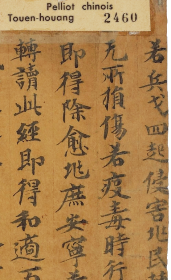 Pelliot chinois
Touen-houang 2460
若兵戈四起侵害此民
无所損傷若疫毒時行
即得除愈此庶安寧
轉讀此經即得和適五